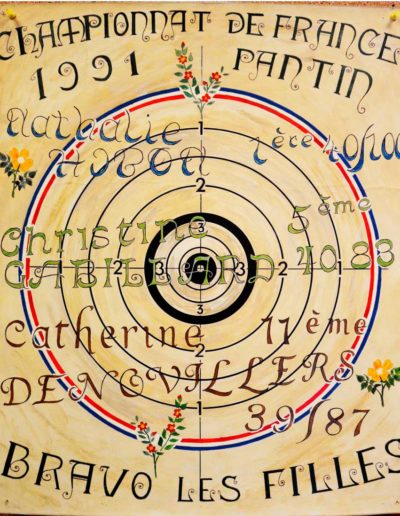 CHAMPIONNAT DE FRANCE
1991 PANTIN
Nathalie 1ère 40/100
HUBON
Christine 5ème
GABILLARD 40.83
Catherine 11ème
DENOVILLERS
39/87
BRAVO LES FILLES
1
2
3
2 3 3 2 1
3
2
1